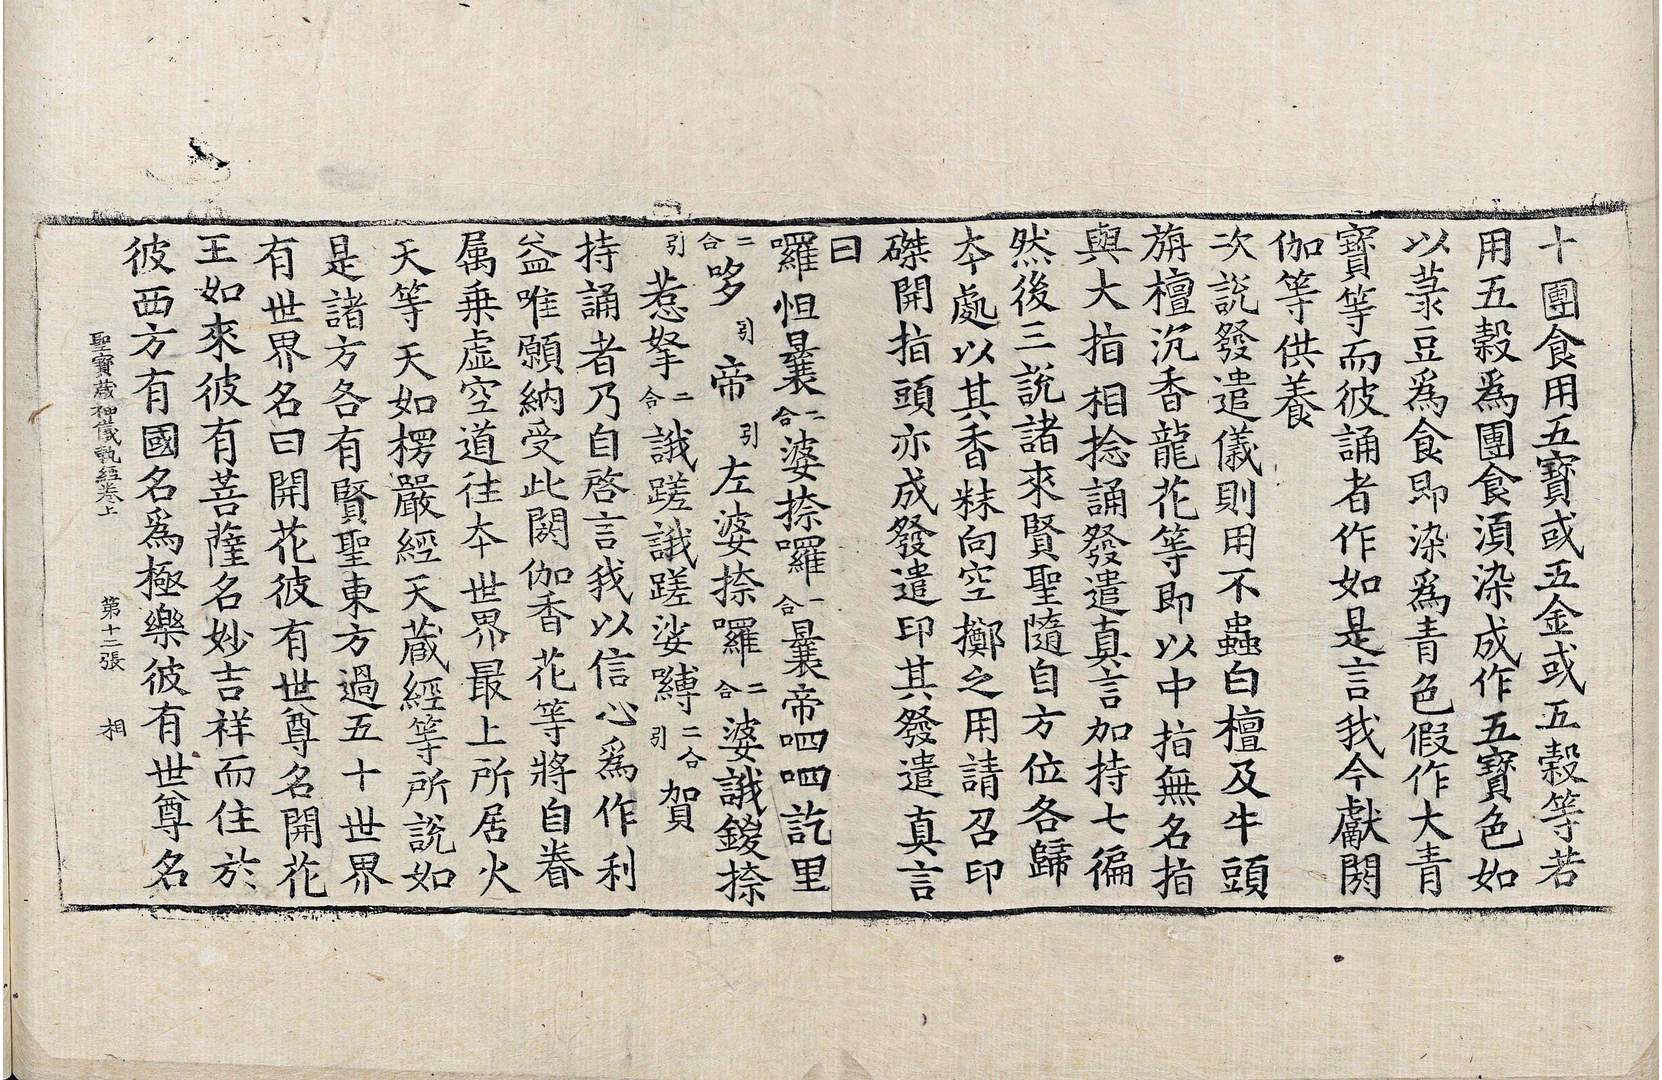 十團食用五寶或五金或五穀等若
用五穀爲團食須染成作五寶色如
以菉豆爲食即染爲青色假作大青
寶等而彼誦者作如是言我今獻閼
伽等供養
次說發遣儀則用不蟲白檀及牛頭
旃檀沉香龍花等即以中指無名指
與大指相捻誦發遣真言加持七徧
然後三說諸來賢聖隨自方位各歸
夲處以其香粖向空擲之用請召印
磔開指頭亦成發遣印其發遣真言
曰
囉怛曩二合婆捺囉一合曩帝呬呬訖里
二合哆引帝引左婆捺囉二合婆誐鍐捺
引惹拏二合誐蹉誐蹉娑嚩二合引賀
持誦者乃自啓言我以信心爲作利
益唯願納受此閼伽香花等將自眷
属乗虛空道往夲世界最上所居火
天等天如楞嚴經天藏經等所說如
是諸方各有賢聖東方過五十世界
有世界名曰開花彼有世尊名開花
王如來彼有菩薩名妙吉祥而住於
彼西方有國名爲極樂彼有世尊名
聖寶藏神儀軌經卷上 第十二張 相